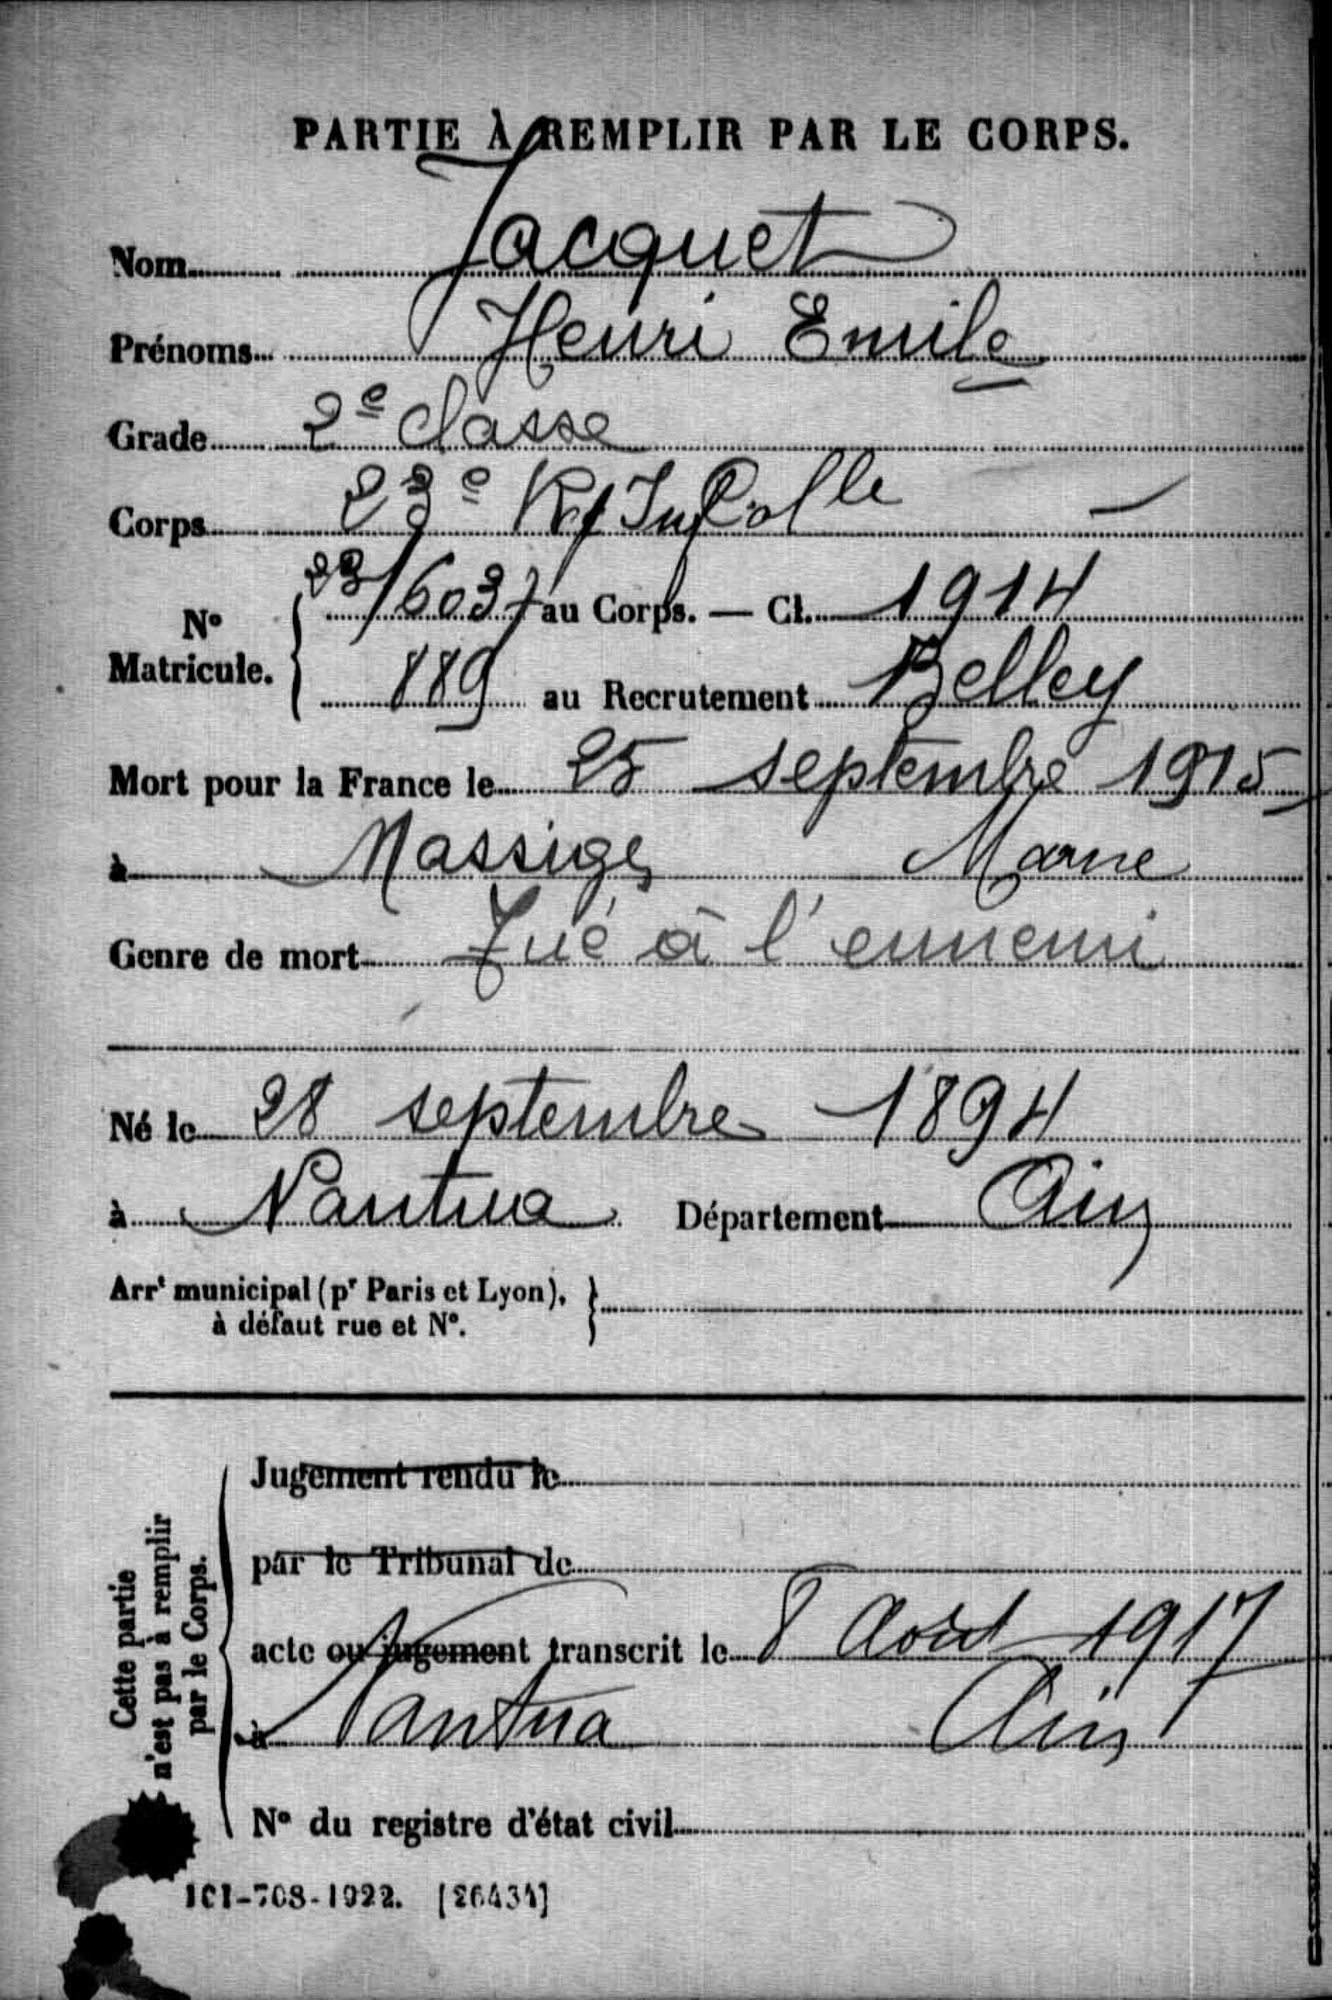 PARTIE À REMPLIR PAR LE CORPS.
Nom Jacquet
Prénoms Henri Emile
Grade 2e classe
Corps 23e Rgt Inf Colle
No Matricule. 23/6037 au Corps. — Cl. 1914
889 au Recrutement Belley
Mort pour la France le 25 septembre 1915
à Massiges Marne
Genre de mort Tué à l'ennemi
Né le 28 septembre 1894
à Nantua Département Ain
Arrt municipal (pr Paris et Lyon),
à défaut rue et No.
Cette partie
n'est pas à remplir
par le Corps.
Jugement rendu le
par le Tribunal de
acte ou jugement transcrit le 8 Août 1917
à Nantua Ain
No du registre d'état civil
101-708-1922. [26434]